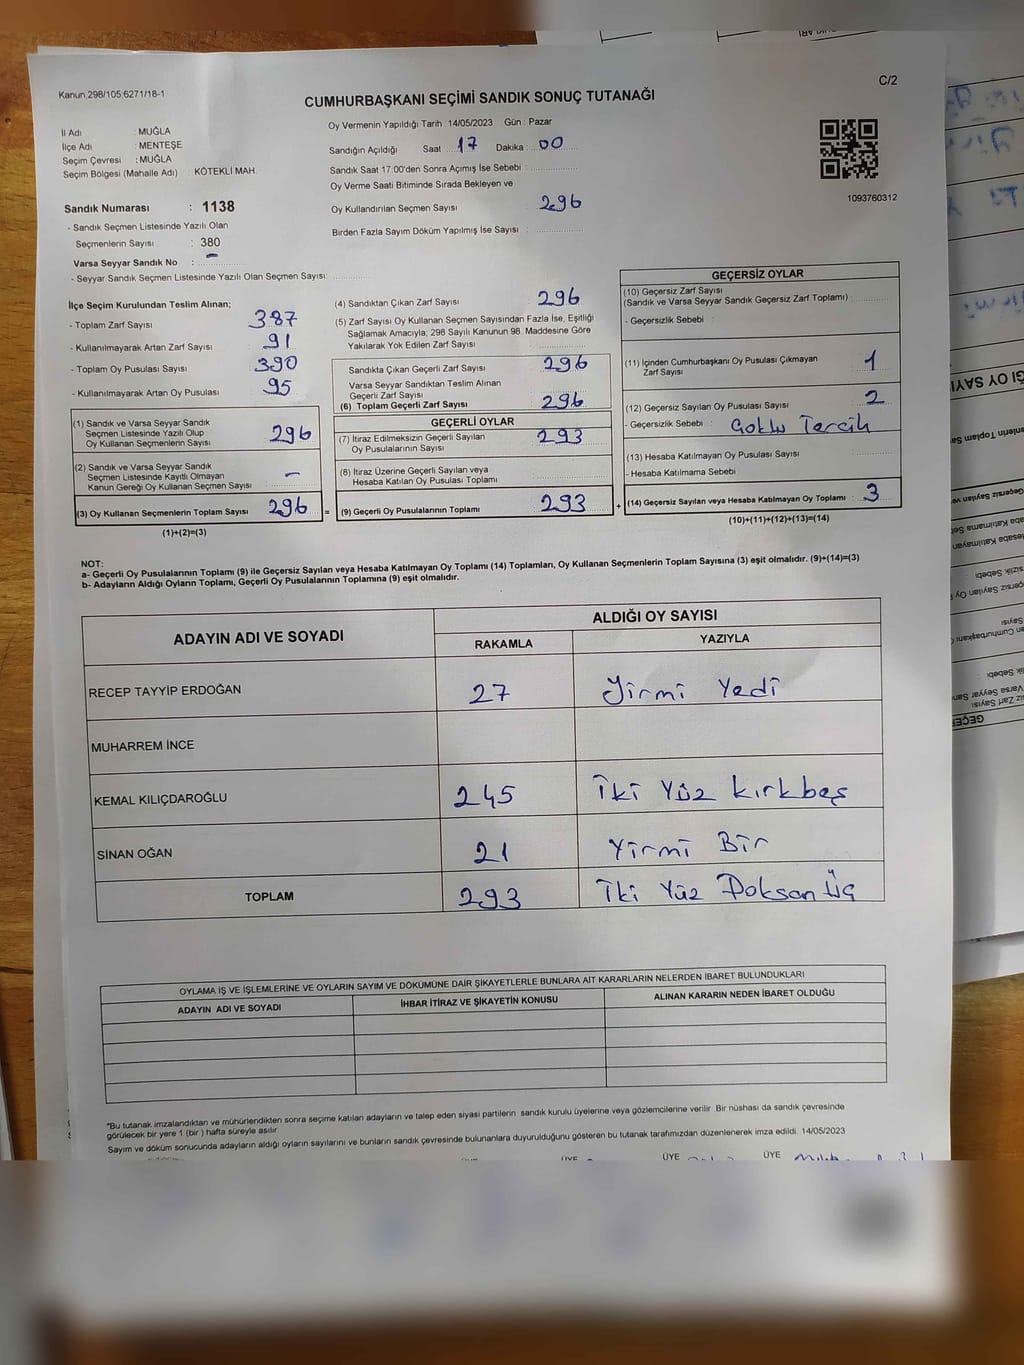 C/2
Kanun,298/105;6271/18-1
CUMHURBAŞKANI SEÇİMİ SANDIK SONUÇ TUTANAĞI
İl Adı : MUĞLA
İlçe Adı : MENTEŞE
Seçim Çevresi : MUĞLA
Seçim Bölgesi (Mahalle Adı) : KÖTEKLİ MAH.
Sandık Numarası : 1138
- Sandık Seçmen Listesinde Yazılı Olan
Seçmenlerin Sayısı : 380
Varsa Seyyar Sandık No : -
- Seyyar Sandık Seçmen Listesinde Yazılı Olan Seçmen Sayısı:
Oy Vermenin Yapıldığı Tarih : 14/05/2023 Gün : Pazar
Sandığın Açıldığı Saat : 17 Dakika : 00
Sandık Saat 17:00'den Sonra Açımış İse Sebebi :
Oy Verme Saati Bitiminde Sırada Bekleyen ve
Oy Kullandırılan Seçmen Sayısı 296
Birden Fazla Sayım Döküm Yapılmış İse Sayısı :
1093760312
İlçe Seçim Kurulundan Teslim Alınan;
- Toplam Zarf Sayısı 387
- Kullanılmayarak Artan Zarf Sayısı 91
- Toplam Oy Pusulası Sayısı 390
- Kullanılmayarak Artan Oy Pusulası 95
(1) Sandık ve Varsa Seyyar Sandık
Seçmen Listesinde Yazılı Olup
Oy Kullanan Seçmenlerin Sayısı 296
(2) Sandık ve Varsa Seyyar Sandık
Seçmen Listesinde Kayıtlı Olmayan
Kanun Gereği Oy Kullanan Seçmen Sayısı -
(3) Oy Kullanan Seçmenlerin Toplam Sayısı 296 =
(1)+(2)=(3)
(4) Sandıktan Çıkan Zarf Sayısı 296
(5) Zarf Sayısı Oy Kullanan Seçmen Sayısından Fazla İse, Eşitliği
Sağlamak Amacıyla, 298 Sayılı Kanunun 98. Maddesine Göre
Yakılarak Yok Edilen Zarf Sayısı
Sandıkta Çıkan Geçerli Zarf Sayısı 296
Varsa Seyyar Sandıktan Teslim Alınan
Geçerli Zarf Sayısı
(6) Toplam Geçerli Zarf Sayısı 296
GEÇERLİ OYLAR
(7) İtiraz Edilmeksizin Geçerli Sayılan
Oy Pusulalarının Toplamı 293
(8) İtiraz Üzerine Geçerli Sayılan veya
Hesaba Katılan Oy Pusulası Toplamı
(9) Geçerli Oy Pusulalarının Toplamı 293 +
GEÇERSİZ OYLAR
(10) Geçersiz Zarf Sayısı
(Sandık ve Varsa Seyyar Sandık Geçersiz Zarf Toplamı) :
- Geçersizlik Sebebi :
(11) İçinden Cumhurbaşkanı Oy Pusulası Çıkmayan
Zarf Sayısı 1
(12) Geçersiz Sayılan Oy Pusulası Sayısı 2
- Geçersizlik Sebebi : Çoklu Tercih
(13) Hesaba Katılmayan Oy Pusulası Sayısı
- Hesaba Katılmama Sebebi
(14) Geçersiz Sayılan veya Hesaba Katılmayan Oy Toplamı 3
(10)+(11)+(12)+(13)=(14)
NOT:
a- Geçerli Oy Pusulalarının Toplamı (9) ile Geçersiz Sayılan veya Hesaba Katılmayan Oy Toplamı (14) Toplamları, Oy Kullanan Seçmenlerin Toplam Sayısına (3) eşit olmalıdır. (9)+(14)=(3)
b- Adayların Aldığı Oyların Toplamı, Geçerli Oy Pusulalarının Toplamına (9) eşit olmalıdır.
ADAYIN ADI VE SOYADI
ALDIĞI OY SAYISI
RAKAMLA YAZIYLA
RECEP TAYYİP ERDOĞAN 27 Yirmi Yedi
MUHARREM İNCE
KEMAL KILIÇDAROĞLU 245 İki Yüz Kırkbeş
SİNAN OĞAN 21 Yirmi Bir
TOPLAM 293 İki Yüz Doksan Üç
OYLAMA İŞ VE İŞLEMLERİNE VE OYLARIN SAYIM VE DÖKÜMÜNE DAİR ŞİKAYETLERLE BUNLARA AİT KARARLARIN NELERDEN İBARET BULUNDUKLARI
ADAYIN ADI VE SOYADI İHBAR İTİRAZ VE ŞİKAYETİN KONUSU ALINAN KARARIN NEDEN İBARET OLDUĞU
*Bu tutanak imzalandıktan ve mühürlendikten sonra seçime katılan adayların ve talep eden siyasi partilerin sandık kurulu üyelerine veya gözlemcilerine verilir. Bir nüshası da sandık çevresinde
görülecek bir yere 1 (bir) hafta süreyle asılır.
Sayım ve döküm sonucunda adayların aldığı oyların sayılarını ve bunların sandık çevresinde bulunanlara duyurulduğunu gösteren bu tutanak tarafımızdan düzenlenerek imza edildi. 14/05/2023
ÜYE ÜYE ÜYE